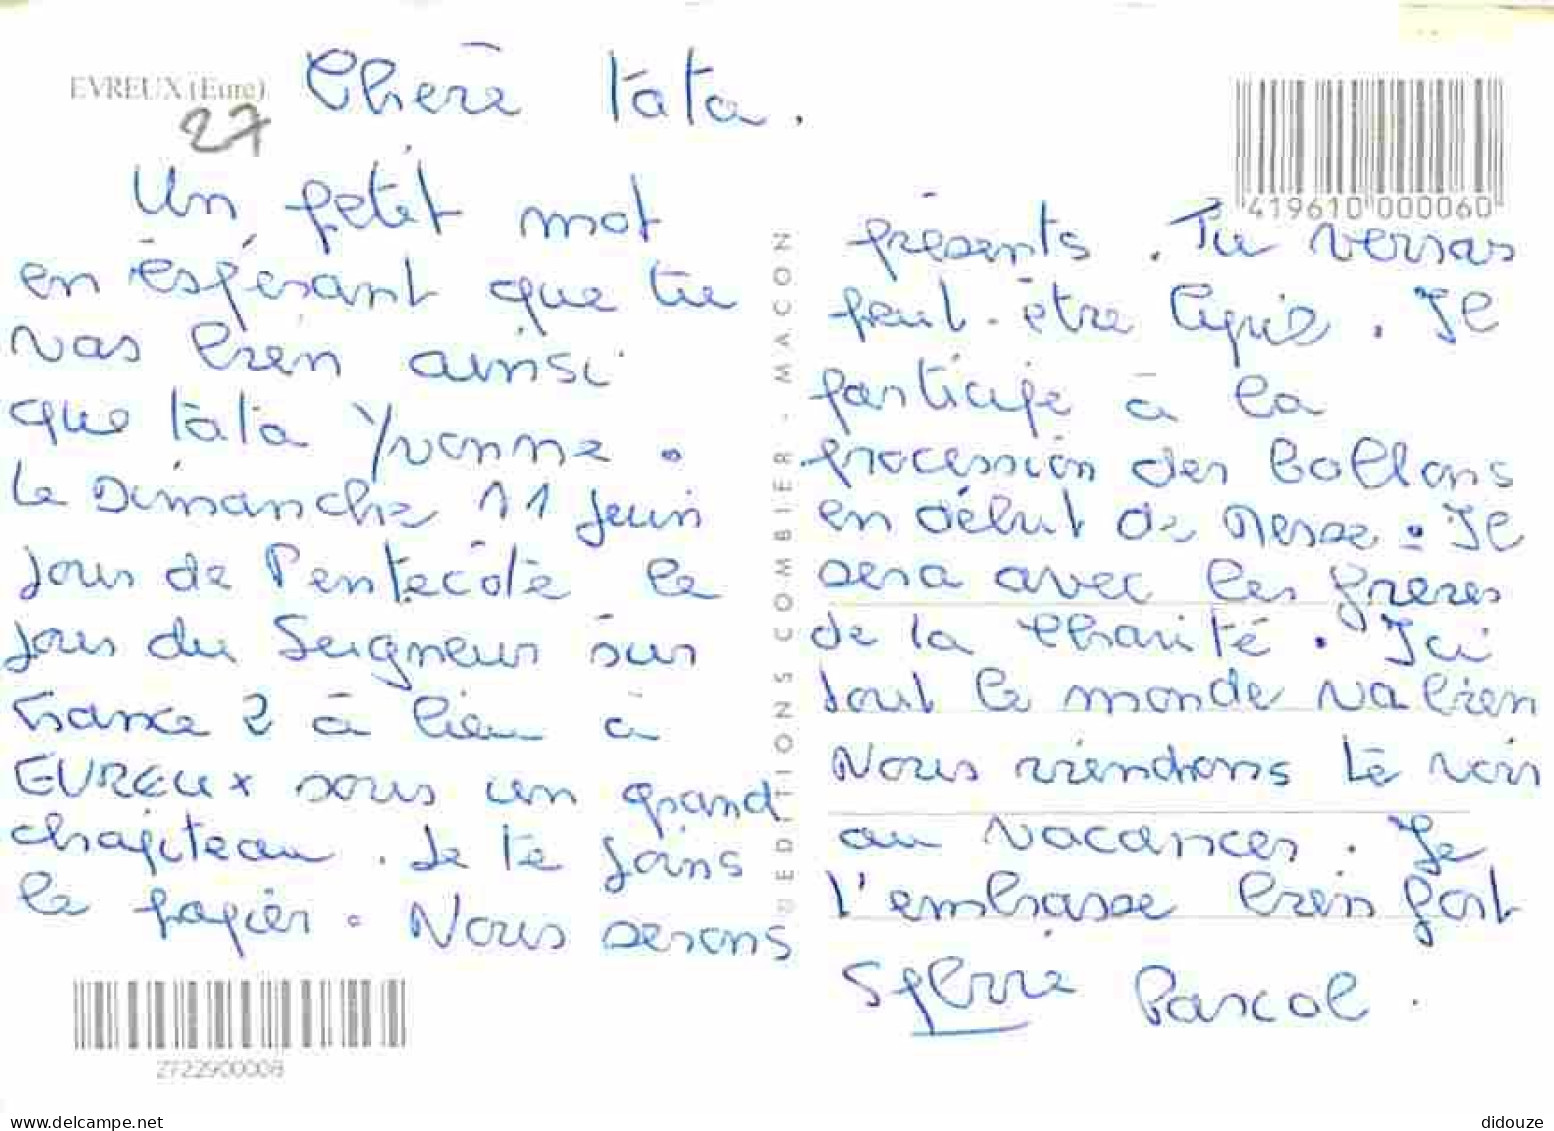 EVREUX (Eure)
27
Chère tata.
Un petit mot
en espérant que tu
vas bien ainsi
que tata Yvonne.
Le Dimanche 11 juin
jour de Pentecôte le
jour du Seigneur sur
France 2 à lieu à
EVREUX sous un grand
chapiteau. Je te joins
le papier. Nous serons
2722900008
EDITIONS COMBIER - MACON
419610 000060
présents. Tu verras
peut-être Cyril. Il
participe à la
procession des ballons
en début de Messe. Il
sera avec les frères
de la Charité. Ici
tout le monde va bien
Nous viendrons te voir
au vacances. Je
t'embrasse bien fort
Sylvie Pascal.
www.delcampe.net
didouze